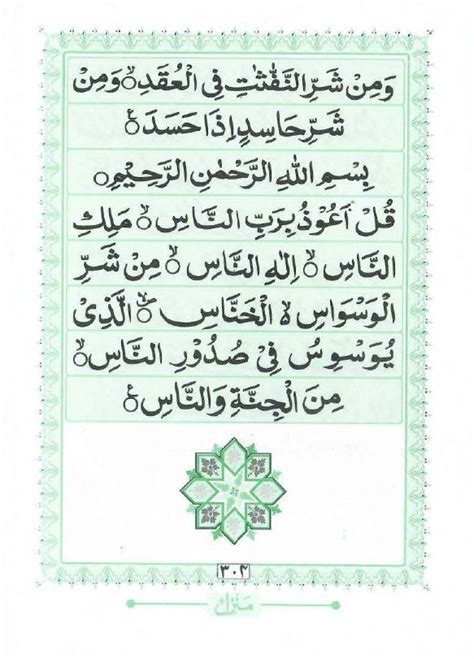 وَمِنْ شَرِّ النَّفّٰثٰتِ فِی الْعُقَدِ ۙ وَمِنْ
شَرِّ حَاسِدٍ اِذَا حَسَدَ ۠
بِسْمِ اللهِ الرَّحْمٰنِ الرَّحِیْمِ ۝
قُلْ اَعُوْذُ بِرَبِّ النَّاسِ ۙ مَلِكِ
النَّاسِ ۙ اِلٰهِ النَّاسِ ۙ مِنْ شَرِّ
الْوَسْوَاسِ ۙ الْخَنَّاسِ ۪ۙ الَّذِیْ
یُوَسْوِسُ فِیْ صُدُوْرِ النَّاسِ ۙ
مِنَ الْجِنَّةِ وَالنَّاسِ ۠
۳۰۴
منزل